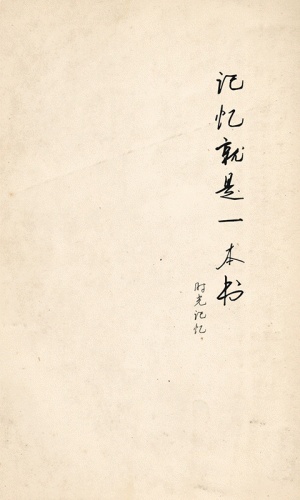 记忆就是一本书
时光记忆。